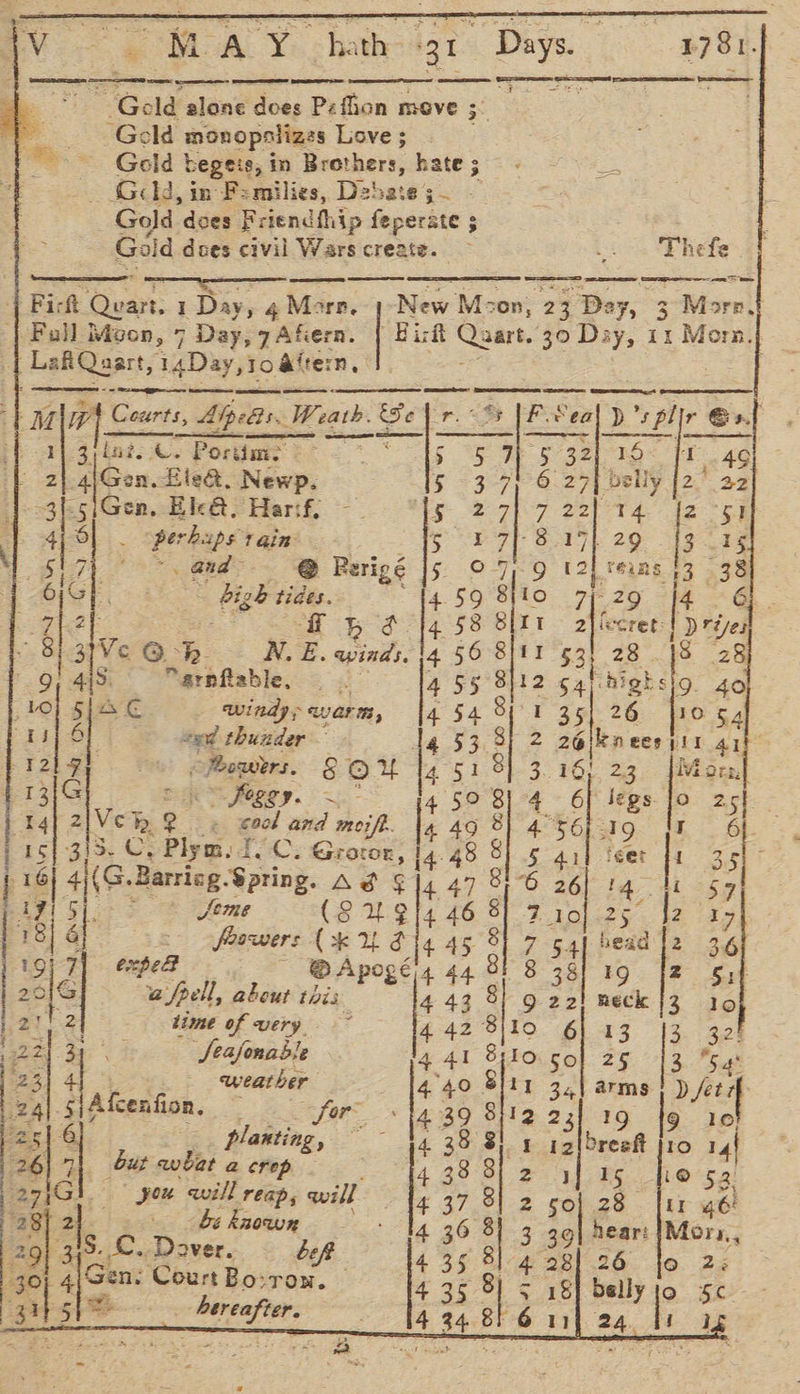 V MAY hath 31 Days. 1781.
Gold alone does Paſſion move ;
Gold monopolizes Love ;
Gold begets, in Brothers, hate ;
Gold, in Families, Debate ;
Gold does Friendſhip ſeperate ;
Gold does civil Wars create. Theſe
Firſt Quart. 1 Day, 4 Morn. New Moon, 23 Day, 3 Morn.
Full Moon, 7 Day, 7 Aftern. Firſt Quart. 30 Day, 11 Morn.
Laſt Quart, 14 Day, 10 Aftern.
M W Courts, Aſpects. Weath. &c r. ☉ s F. Sea ☽'s pl r ☽ s.
1 3 Inf. C. Portſm. 5 5 7 5 32 16 1 49
2 4 Gen. Elect. Newp. 5 3 7 6 27 belly 2 22
3 5 Gen. Elect. Hartf. 5 2 7 7 22 14 2 51
4 6 perhaps rain 5 1 7 8 17 29 3 15
5 7 and ☽ Perigé 5 0 7 9 12 reins 3 38
6 G high tides. 4 59 8 10 7 29 4 6
7 2 ♄ ♂ 4 58 8 11 2 ſecret ☽ riſes
8 3 Vc ☉ ♄ N. E. winds. 4 56 8 11 53 28 8 28
9 4 4 55 8 12 54 thighs 9 40
10 5 windy, warm, 4 54 8 1 35 26 10 54
11 6 and thunder 4 53 8 2 26 knees 11 41
12 7 ſhowers. 8 ☉ ♃ 4 51 8 3 16 23 Morn
13 G foggy. 4 50 8 4 6 legs 0 25
14 2 Vc ♄ ♀ cool and moiſt. 4 49 8 4 56 19 1 6
15 3 S. C. Plym. I. C. Groton, 4 48 8 5 41 feet 1 35
16 4 (G. Barring. Spring. △ ♂ ☿ 4 47 8 6 26 14 1 57
17 5 ſome (8 ♃ ♀ 4 46 8 7 10 25 2 17
18 6 ſhowers (✶ ♃ ♂ 4 45 8 7 54 head 2 36
19 7 expect ☽ Apogé 4 44 8 8 38 19 2 51
20 G a ſpell, about this 4 43 8 9 22 neck 3 10
21 2 time of very 4 42 8 10 6 13 3 32
22 3 ſeaſonable 4 41 8 10 50 25 3 54
23 4 weather 4 40 8 11 34 arms ☽ ſets
24 5 Aſcenſion. for 4 39 8 12 23 19 9 10
25 6 planting, 4 38 8 1 12 breaſt 10 14
26 7 but what a crop 4 38 8 2 1 15 10 53
27 G you will reap, will 4 37 8 2 50 28 11 46
28 2 be known 4 36 8 3 39 heart Morn,
29 3 S. C. Dover. beſt 4 35 8 4 28 26 0 25
30 4 Gen. Court Boſton. 4 35 8 5 18 belly 0 50
31 5 hereafter. 4 34 8 6 11 24 1 15